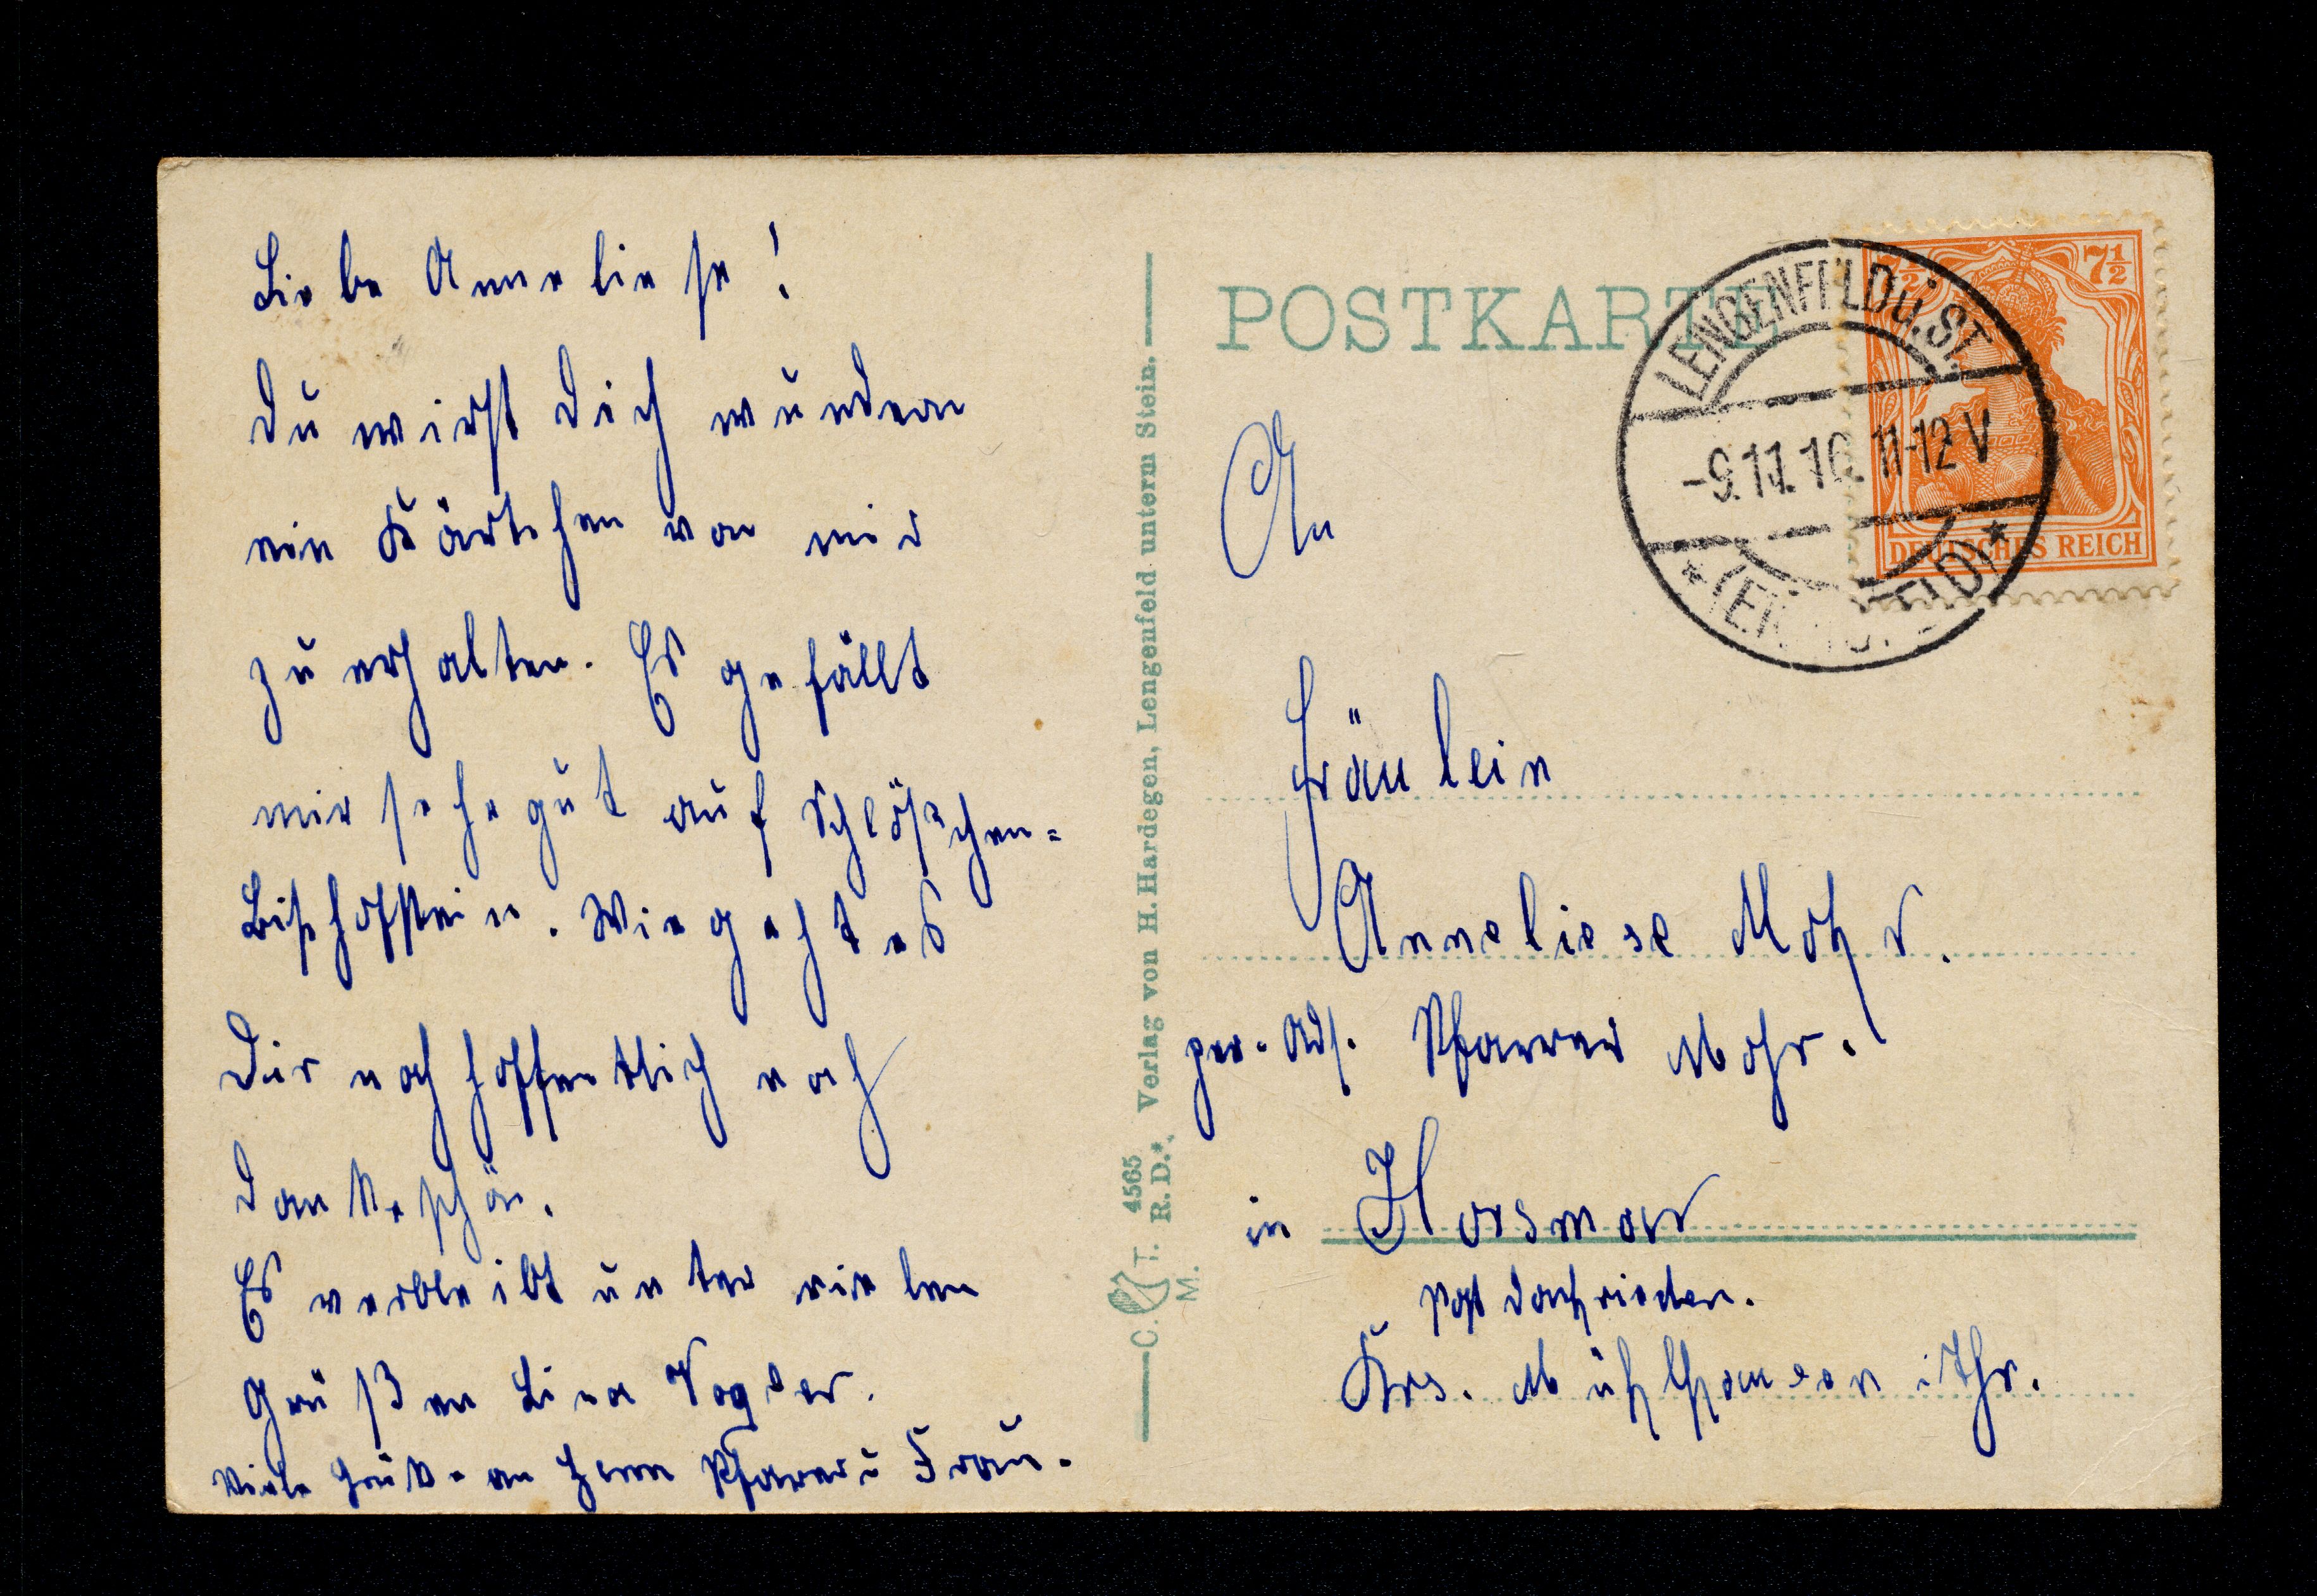 Liebe Anneliese!
Du wirst Dich wundern
ein Kärtchen von mir
zu erhalten. Es gefällt
mir sehr gut auf Schlößchen=
Bischofstein. Wie geht es
Dir noch hoffentlich noch
Dankeschön.
Es verbleibt unter vielen
Grüßen Lina Vogler.
Viele Grüße an Herrn Pfarrer u Frau.
C. T. M. 4565 R. D.*. Verlag von H. Hardegen, Lengenfeld unterm Stein.
POSTKARTE
7½ 7½
DEUTSCHES REICH
LENGENFELD u. ST.
-9.11.16. 11-12 V
An
Fräulein
Anneliese Mohr.
per. Adr. Pfarrer Mohr.
in Horsmar
Post Dachrieden.
Krs. Mühlhausen i Thr.